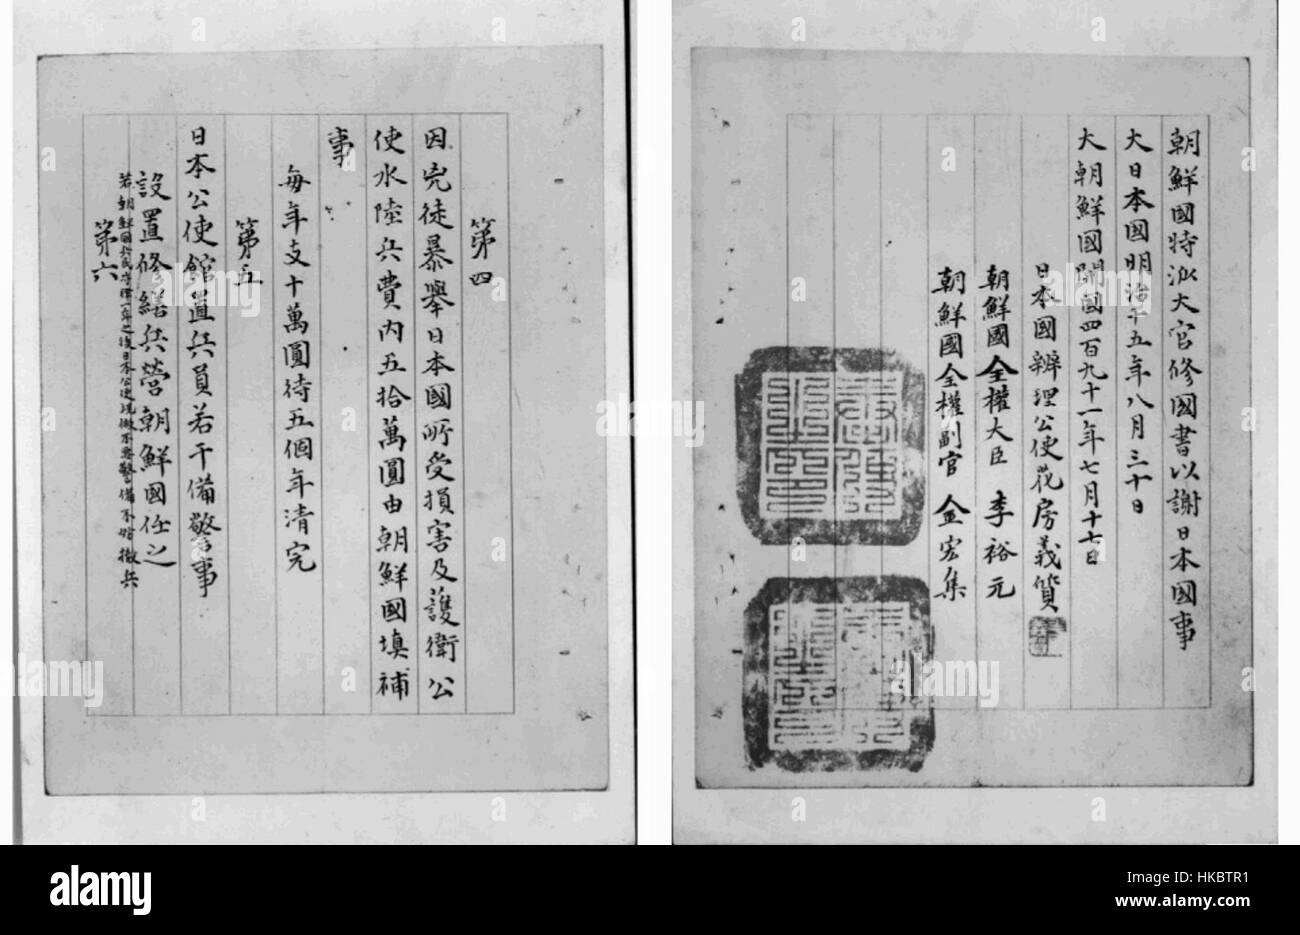 第四
因兇徒暴擧日本國所受損害及護衛公
使水陸兵費內五拾萬圓由朝鮮國塡補
事
每年支十萬圓待五個年清完
第五
日本公使館置兵員若干備警事
設置修繕兵營朝鮮國任之
若朝鮮國兵民守律一年之後日本公使視做不要警備不妨撤兵
第六
朝鮮國特派大官修國書以謝日本國事
大日本國明治十五年八月三十日
大朝鮮國開國四百九十一年七月十七日
日本國辨理公使花房義質
朝鮮國全權大臣 李裕元
朝鮮國全權副官 金宏集
alamy
alamy
Image ID: HKBTR1
www.alamy.com